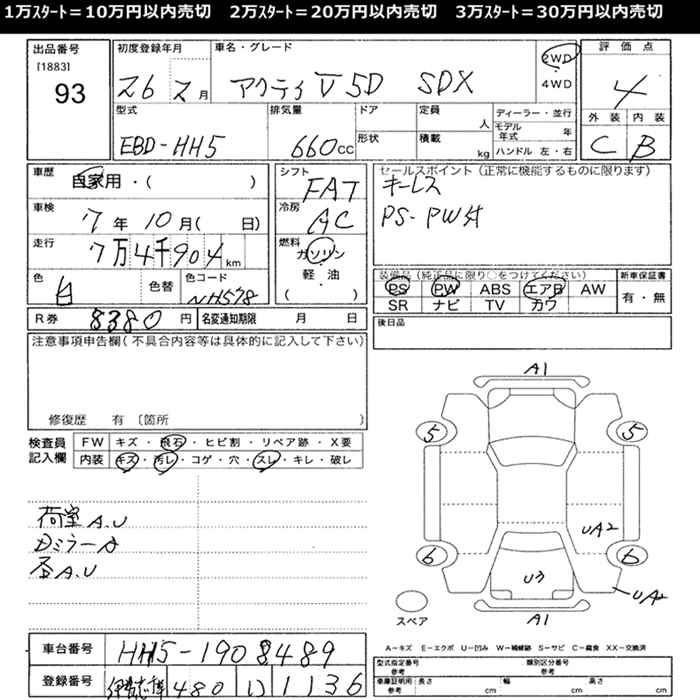 1万ｽﾀｰﾄ＝10万円以内売切　2万ｽﾀｰﾄ＝20万円以内売切　3万ｽﾀｰﾄ＝30万円以内売切
出品番号 初度登録年月 車名・グレード 評価点
[1883]
93 26 2月 アクティ V 5D SDX 2WD 4WD 4
型式 排気量 ドア 定員 人 ディーラー・並行 外装 内装
形状 積載 kg モデル年式 年
EBD-HH5 660cc ハンドル 左・右 C B
車歴 自家用・( ) シフト FAT セールスポイント（正常に機能するものに限ります）
キーレス
車検 7年 10月( 日) 冷房 AC PS・PW付
走行 7万4千904km 燃料 ガソリン
軽・油
( )
色 白 色替 色コード NH578
装備品（純正品に限り○をつけてください） 新車保証書
PS PW ABS エアB AW 有・無
SR ナビ TV カワ
R券 8380円 名変通知期限 月 日 後日品
注意事項申告欄（不具合内容等は具体的に記入して下さい）
修復歴 有 〔箇所
検査員記入欄 FW キズ・飛石・ヒビ割・リペア跡・X要
内装 キズ・汚レ・コゲ・穴・スレ・キレ・破レ
荷室A.U
Dミラー A
A.U
A1
5 5
UA2
6 6
U3
UA2
スペア A1
A－キズ E－エクボ U－凹み W－補修跡 S－サビ C－腐食 XX－交換済
車台番号 HH5-1908489
型式指定番号 参考 類別区分番号 参考
登録番号 480 い 1136
車庫証明用 参考 長さ cm 幅 cm 高さ cm